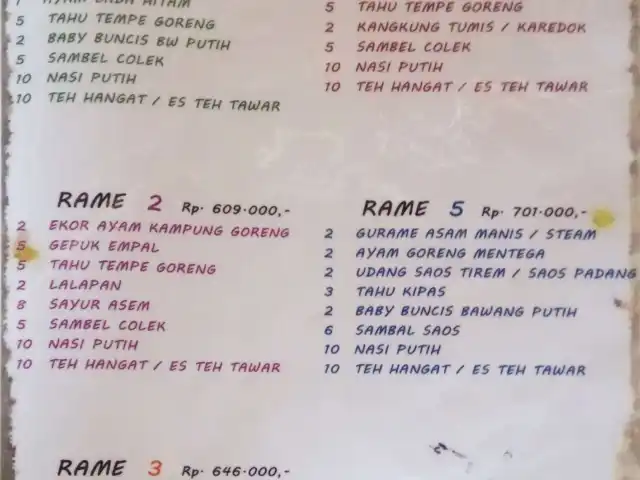 5 TAHU TEMPE GORENG
2 BABY BUNCIS BW PUTIH
5 SAMBEL COLEK
10 NASI PUTIH
10 TEH HANGAT / ES TEH TAWAR
5 TAHU TEMPE GORENG
2 KANGKUNG TUMIS / KAREDOK
5 SAMBEL COLEK
10 NASI PUTIH
10 TEH HANGAT / ES TEH TAWAR
RAME 2 Rp. 609.000,-
2 EKOR AYAM KAMPUNG GORENG
5 GEPUK EMPAL
5 TAHU TEMPE GORENG
2 LALAPAN
8 SAYUR ASEM
5 SAMBEL COLEK
10 NASI PUTIH
10 TEH HANGAT / ES TEH TAWAR
RAME 5 Rp. 701.000,-
2 GURAME ASAM MANIS / STEAM
2 AYAM GORENG MENTEGA
2 UDANG SAOS TIREM / SAOS PADANG
3 TAHU KIPAS
2 BABY BUNCIS BAWANG PUTIH
6 SAMBAL SAOS
10 NASI PUTIH
10 TEH HANGAT / ES TEH TAWAR
RAME 3 Rp. 646.000,-